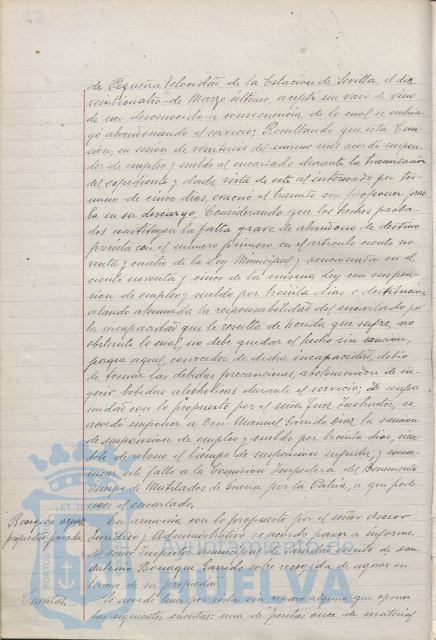 de Pequeña Velocidad de la Estación de Sevilla el día
veinticuatro de Marzo último, aceptó un vaso de vino
de un desconocido a consecuencia de lo cual se embria-
gó abandonando el servicio; Resultando que esta Comi-
sión, en sesión de veintiseis del mismo mes acordó suspen-
der de empleo y sueldo al encartado durante la tramitación
del expediente y dada vista de este al interesado por tér-
mino de cinco días, evacuó el trámite sin proponer prue-
ba en su descargo; Considerando que los hechos proba-
dos constituyen la falta grave de abandono de destino
prevista con el número primero en el artículo ciento no-
venta y cuatro de la Ley Municipal y sancionada en el
ciento noventa y cinco de la misma Ley con suspen-
sión de empleo y sueldo por treinta días o destitución
estando atenuada la responsabilidad del encartado por
la incapacidad que le resulta de herida que sufre, no
obstante lo cual, no debe quedar el hecho sin sanción,
porque aquel, conocedor de dicha incapacidad, debió
de tomar las debidas precauciones, absteniéndose de in-
gerir bebidas alcohólicas durante el servicio; De confor-
midad con lo propuesto por el señor Juez Instructor, se
acordó imponer a Don Manuel Garrido Díaz, la sanción
de suspensión de empleo y sueldo por treinta días, sién-
dole de abono el tiempo de suspensión sufrida, y comu-
nicar este fallo a la Comisión Inspectora del Benemérito
Cuerpo de Mutilados de Guerra por la Patria, a que perte-
nece el encartado.
Recogida aguas
propiedad privada
En armonía con lo propuesto por el señor Asesor
Jurídico y Administrativo se acordó pasar a informe
de señor Arquitecto municipal el escrito de Don
Antonio Garrido sobre recogida de aguas en
terreno de su propiedad.
Cuentas.
Se acordó tener por vistas sin reparo alguno que oponer
las siguientes cuentas: una de pesetas once de material
HUELVA